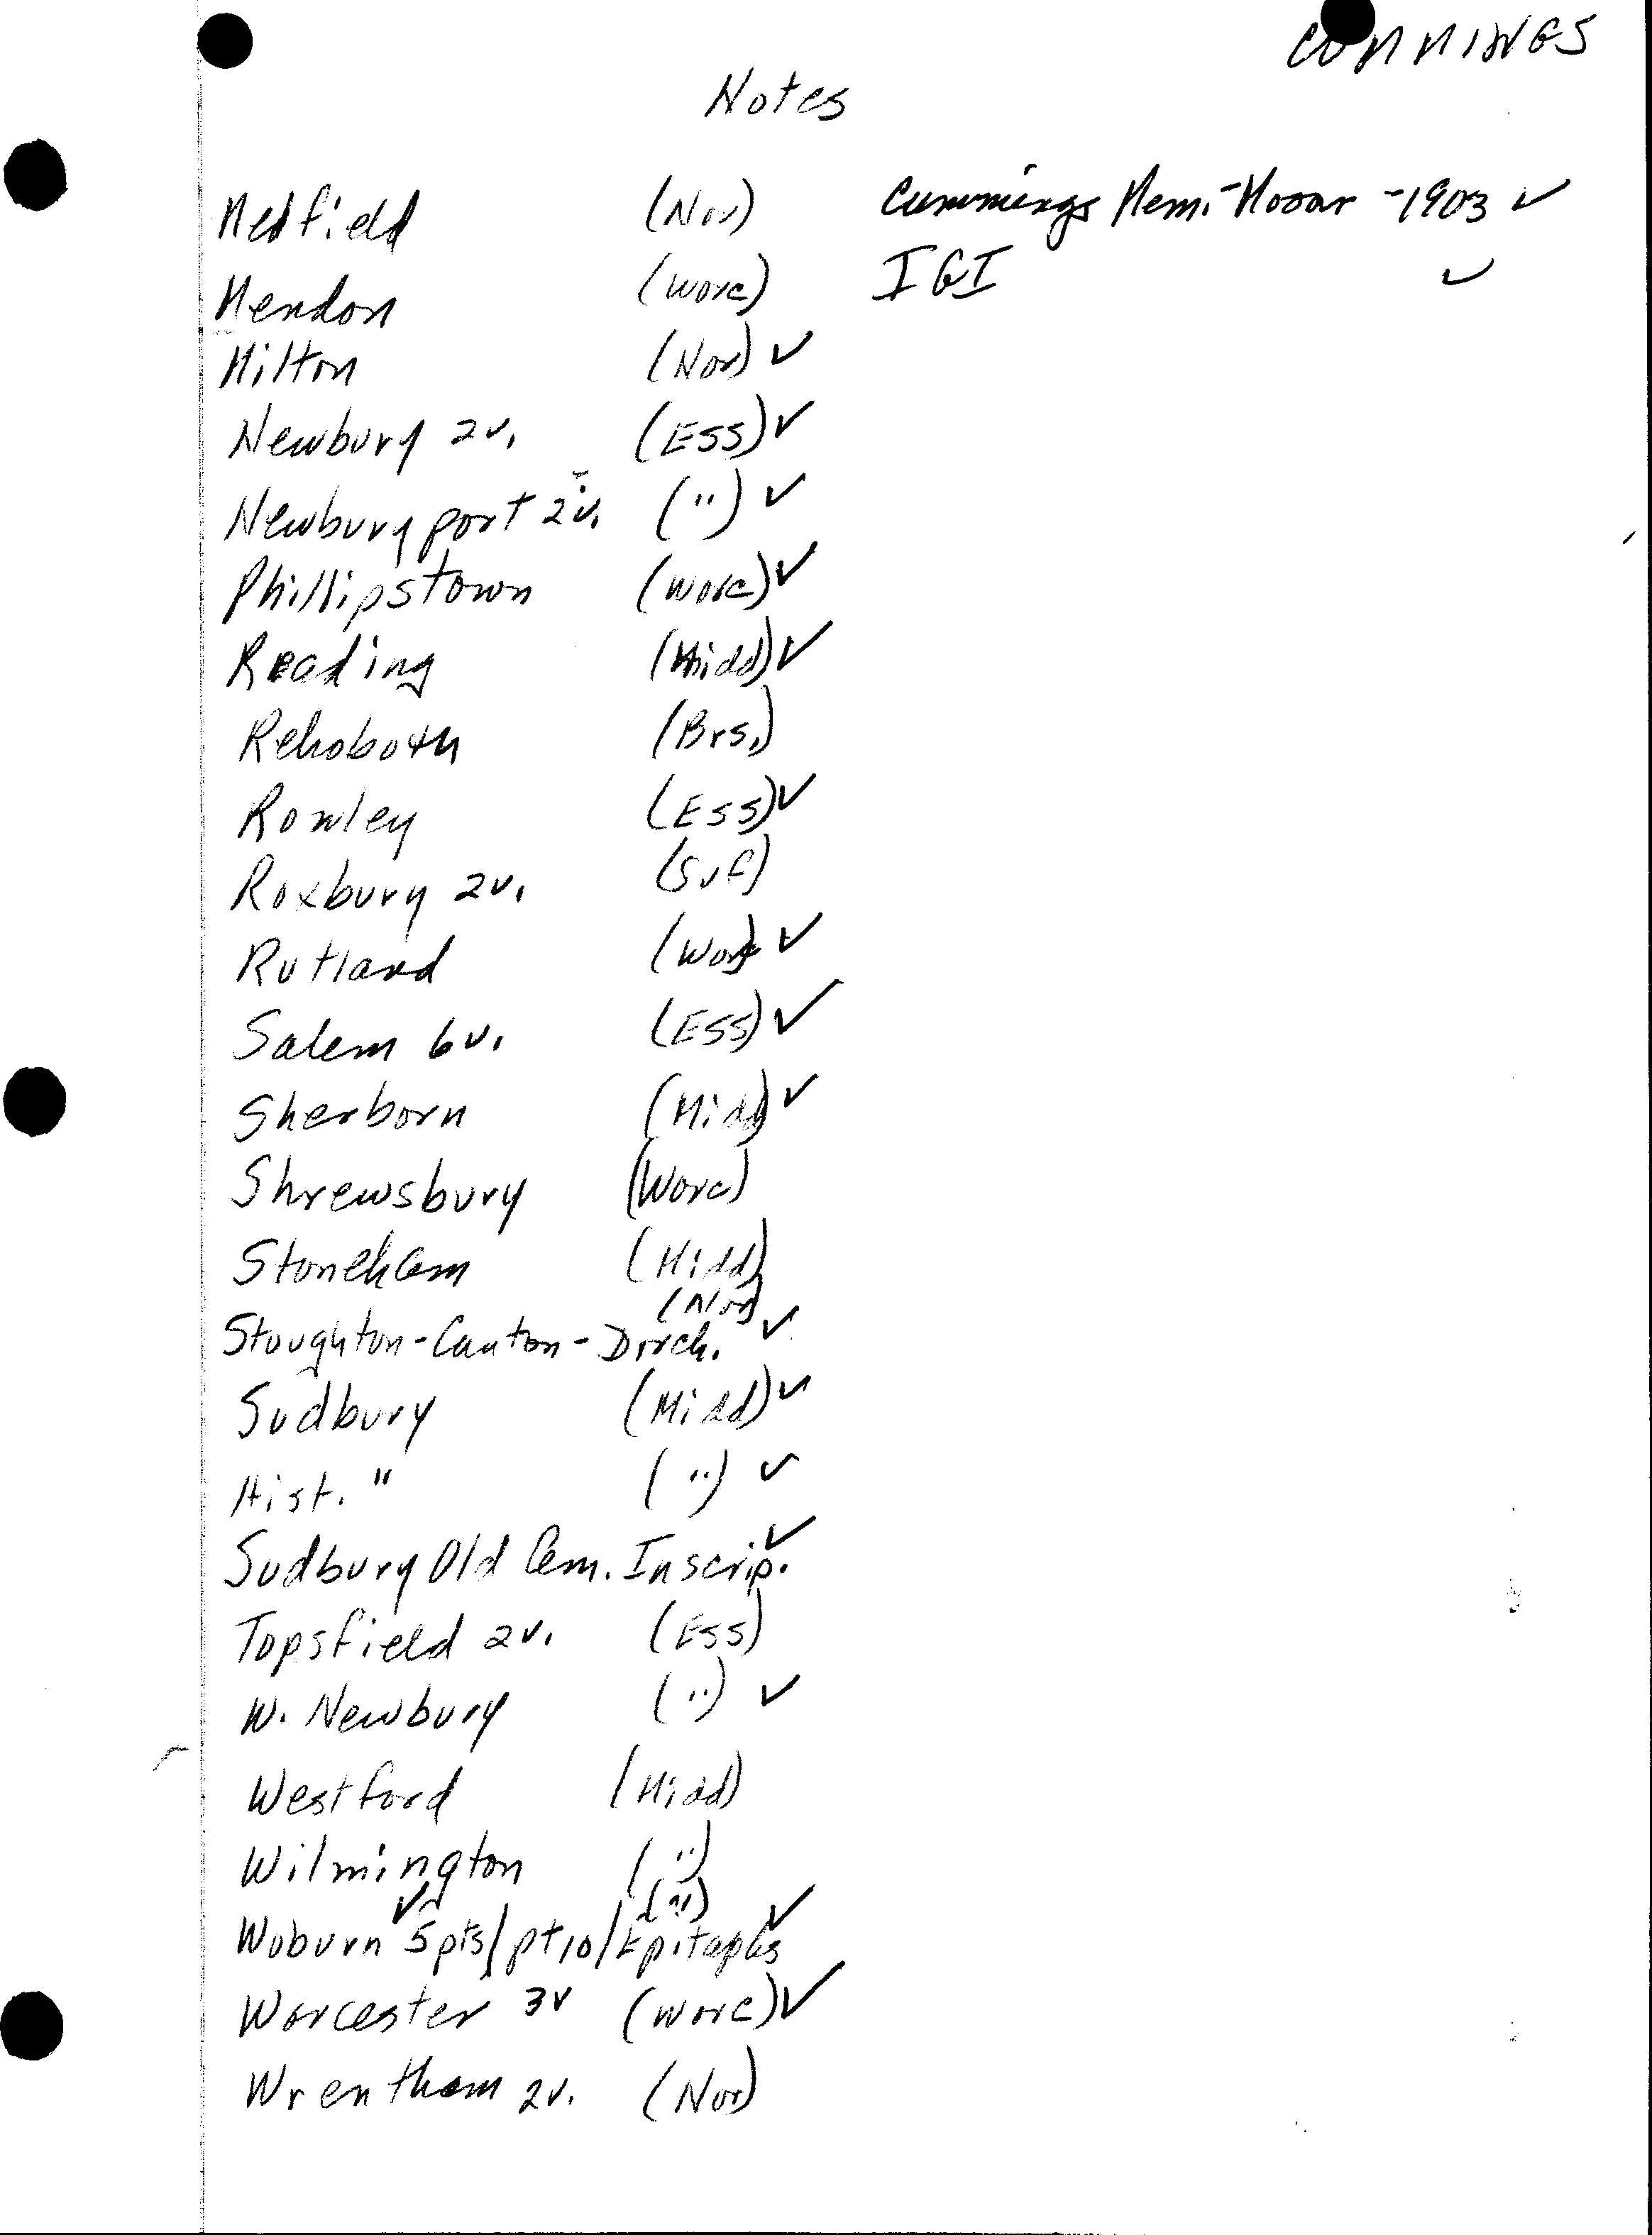 CUMMINGS
Notes
Medfield (Nor) Cummings Mem.-Mooar -1903 ✓
Mendon (Worc) IGI ✓
Milton (Nor) ✓
Newbury 2v. (ESS) ✓
Newburyport 2v. (") ✓
Phillipstown (Worc) ✓
Reading (Midd) ✓
Rehoboth (Brs.)
Rowley (ESS) ✓
Roxbury 2v. (Suf)
Rutland (Worc) ✓
Salem 6v. (ESS) ✓
Sherborn (Midd) ✓
Shrewsbury (Worc)
Stoneham (Midd)
(Nor)
Stoughton-Canton-Dorch. ✓
Sudbury (Midd) ✓
Hist. " (") ✓
Sudbury Old Cem. Inscrip. ✓
Topsfield 2v. (ESS)
W. Newbury (") ✓
Westford (Midd)
Wilmington (")
✓ (") ✓
Woburn 5pts/pt10/Epitaphs
Worcester 3v (Worc) ✓
Wrentham 2v. (Nor)